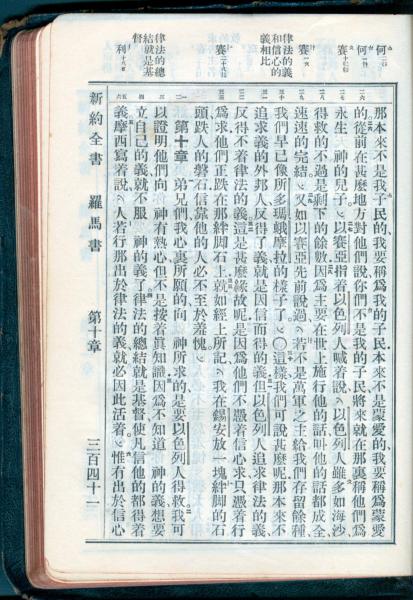 何二○三
何一○十
賽十○廿二
賽一○九
律法的義
和信心的
義相比
賽二十八○十六
律法的總
結就是基
督
利十八○五
那本來不是我子民的、我要稱爲我的子民本來不是蒙愛的、我要稱爲蒙愛
的從前在甚麽地方對他們說、你們不是我的子民將來就在那裏稱他們爲
永生 神的兒子、以賽亞指着以色列人喊着說、以色列人雖多如海沙
得救的不過是剩下的餘數因爲主要在世上施行他的話叫他的話都成全
速速的完結。又如以賽亞先前說過、若不是萬軍之主給我們存留餘種
我們早已像所多瑪蛾摩拉的樣子了。〇這樣我們可說甚麽呢那本來不
追求義的外邦人反得了義就是因信而得的義但以色列人追求律法的義
反得不着律法的義這是甚麽緣故呢是因爲他們不憑着信心求只憑着行
爲求他們正跌在那絆脚石上就如經上所記、我在錫安放一塊絆脚的石
頭跌人的磐石信靠他的人必不至於羞愧。
第十章 弟兄們我心裏所願的向 神所求的是要以色列人得救我可
以證明他們向 神有熱心但不是按着眞知識因爲不知道 神的義想要
立自己的義就不服 神的義了律法的總結就是基督使凡信他的都得着
義摩西寫着說、人若行那出於律法的義就必因此活着。惟有出於信心
新約全書 羅馬書 第十章 三百四十一